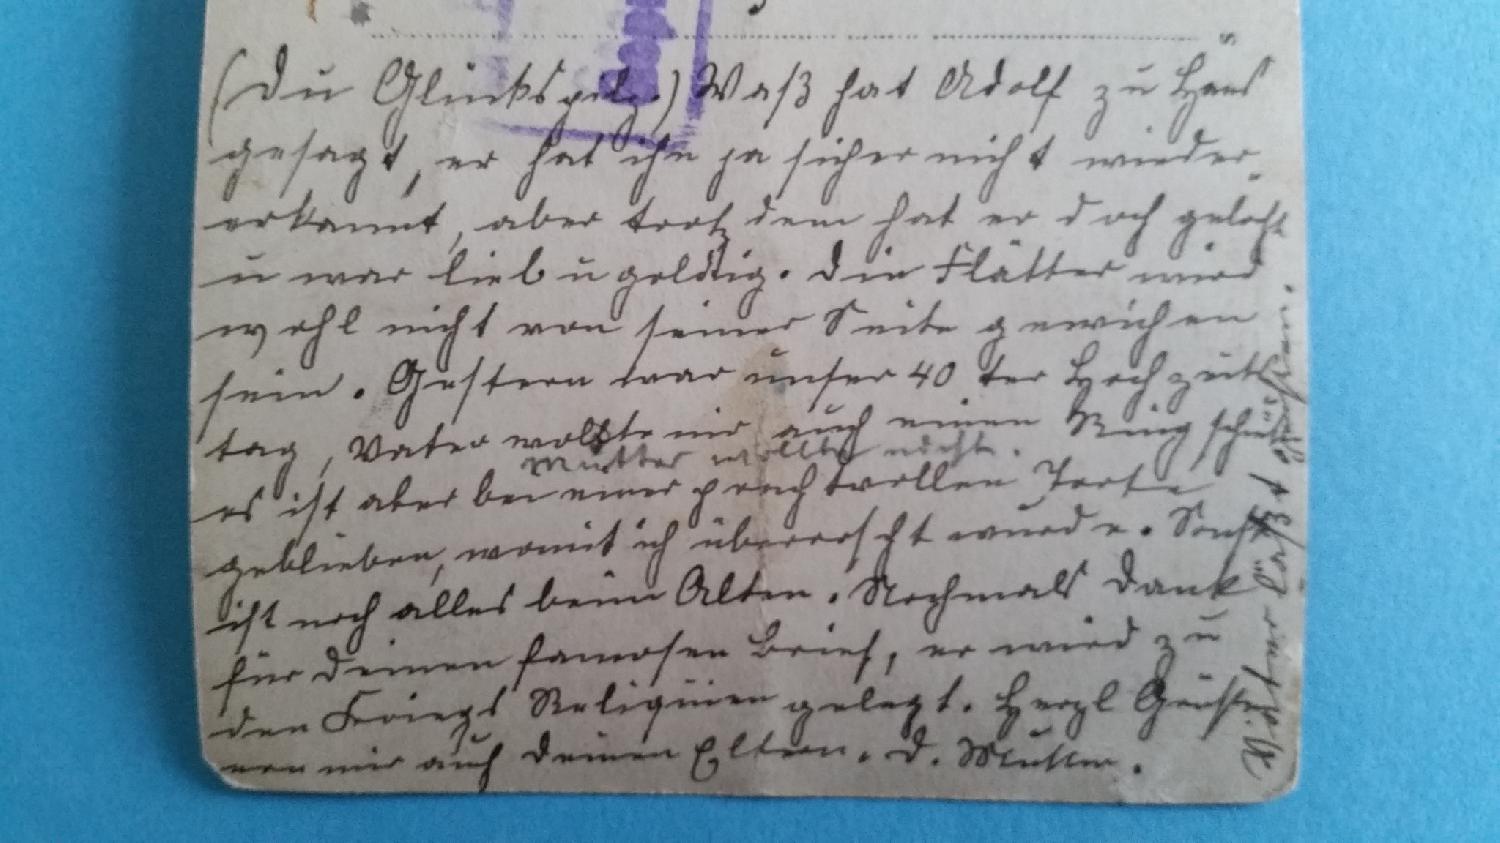 (Du Glückspilz.) Waß hat Adolf zu Hans
gesagt, er hat ihn ja sicher nicht wieder
erkannt, aber trotz dem hat er doch gelacht
u war lieb u goldig. Die Flätter wird
wohl nicht von seiner Seite gewichen
sein. Gestern war unser 40 ter Hochzeits
tag, Vater wollte mir auch einen Ring
Mutter wollte nicht.
es ist aber bei einer prachtvollen Torte
geblieben, womit ich überrascht wurde. Sonst
ist noch alles beim Alten. Nochmals Dank
für deinen famosen Brief, er wird zu
den Kriegs Reliquien gelegt. Herzl Grüße
von mir auch deinen Eltern. D. Mutter.
Vater läßt grüßen.